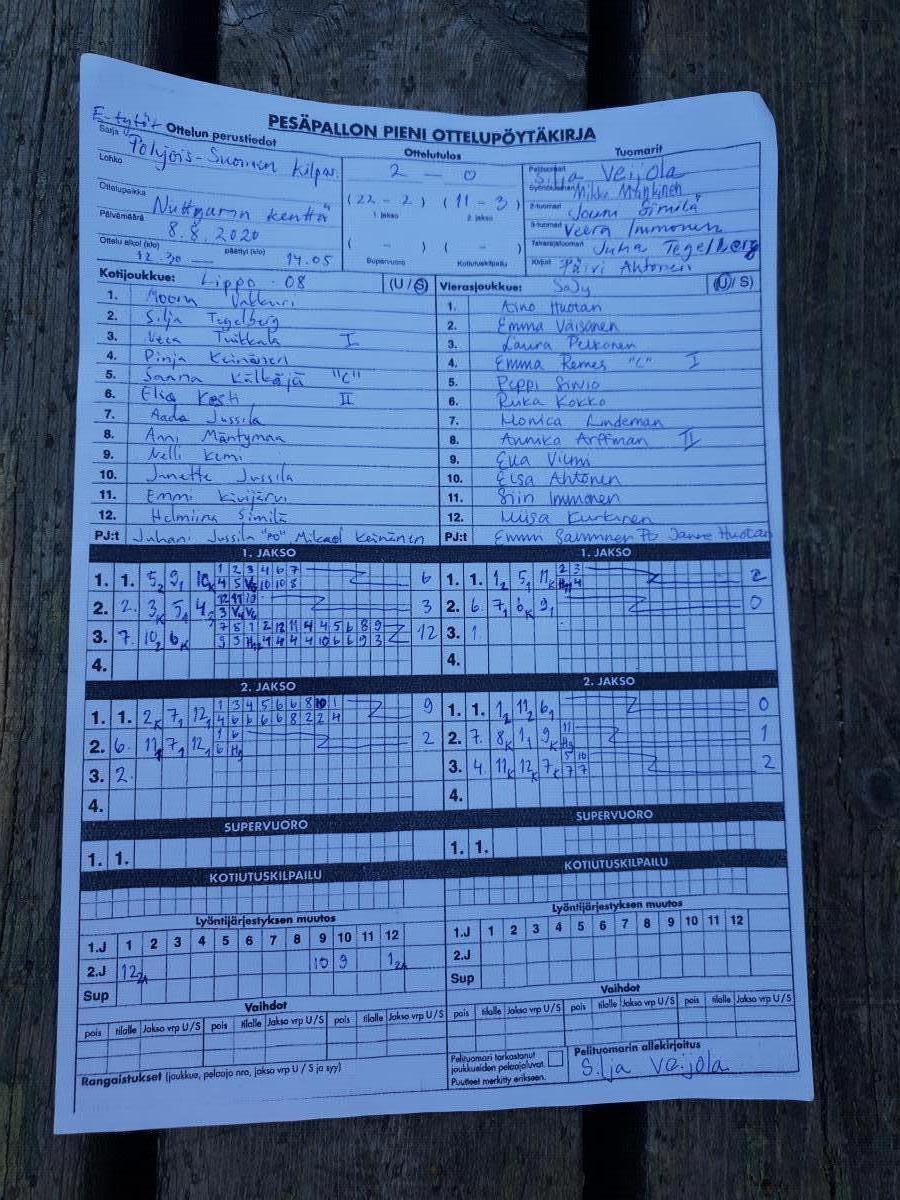 PESÄPALLON PIENI OTTELUPÖYTÄKIRJA
E-tytöt
Sarja Ottelun perustiedot
Pohjois-Suomen Kilpa.
Lohko
Ottelupaikka
Nuttgarin kenttä
Päivämäärä 8.8.2020
Ottelu alkoi (klo) 12.30 päättyi (klo) 14.05
Ottelutulos
2 — 0
(22 - 2) (11 - 3)
1. jakso 2. jakso
( - ) ( - )
Supervuoro Kotiutuskilpailu
Tuomarit
Pelituomari Silja Veijola
Mikko
2-tuomari Jouni Similä
3-tuomari Veera Immonen
Takarajatuomari Juha Tegelberg
Kirjuri Päivi Ahtonen
Kotijoukkue: Lippo -08 (U / S)
1. Moona Vakkuri
2. Silja Tegelberg
3. Veea Tuikkala I
4. Pinja Keinänen
5. Saana Kälkäjä "C"
6. Elia Kosti II
7. Aada Jussila
8. Anni Mäntymaa
9. Nelli Kemi
10. Janette Jussila
11. Emmi Kivijärvi
12. Helmiina Similä
PJ:t Juhani Jussila "PJ" Mikael Keinänen
Vierasjoukkue: SaJy (U / S)
1. Aino Huotari
2. Emma Väisänen
3. Laura Pelkonen
4. Emma Remes "C" I
5. Peppi Sirviö
6. Ruka Kokko
7. Monica Lindeman
8. Annika Arffman II
9. Eva Vilmi
10. Elsa Ahtonen
11. Siiri Immonen
12. Miisa Kurkinen
PJ:t Emmi Janne Huotari
1. JAKSO
1. 1. 5₂ 9₁ 10ₖ
1 2 3 4 6 7
6
2. 2. 3ₖ 5₁ 4₂
3
3. 7. 10₂ 6ₖ
7 5 1 2 12 11 4 4 5 6 8 9
12
4.
1. JAKSO
1. 1. 1₂ 5₁ 11ₖ
2 3
2
2. 6. 7₁ 8ₖ 9₁ 0
3. 1.
4.
2. JAKSO
1. 1. 2ₖ 7₁ 12₁
1 3 4 5 6 6 8 10 1
4 6 6 6 6 8 2 2 4
9
2. 6. 11₁ 7₁ 12₁
1 6
2
3. 2.
4.
2. JAKSO
1. 1. 1₂ 11₂ 6₁ 0
2. 7. 8ₖ 1₁ 9ₖ
11
1
3. 4. 11ₖ 12ₖ 7ₖ
5 10
7 7
2
4.
SUPERVUORO
1. 1.
SUPERVUORO
1. 1.
KOTIUTUSKILPAILU
KOTIUTUSKILPAILU
Lyöntijärjestyksen muutos
1.J 1 2 3 4 5 6 7 8 9 10 11 12
2.J 12 10 9 1
Sup
Lyöntijärjestyksen muutos
1.J 1 2 3 4 5 6 7 8 9 10 11 12
2.J
Sup
Vaihdot
pois tilalle Jakso vrp U / S pois tilalle Jakso vrp U / S pois tilalle Jakso vrp U / S
Vaihdot
pois tilalle Jakso vrp U / S pois tilalle Jakso vrp U / S pois tilalle Jakso vrp U / S
Rangaistukset (joukkue, pelaaja nro, jakso vrp U / S ja syy)
Pelituomari tarkastanut
joukkueiden pelaajaluvat.
Puutteet merkitty erikseen.
Pelituomarin allekirjoitus
Silja Veijola